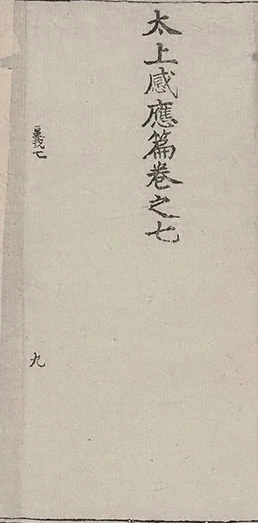 太上感應篇卷之七
義七
九